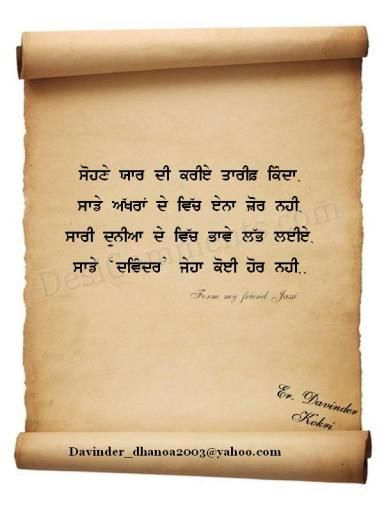 ਸੋਹਣੇ ਯਾਰ ਦੀ ਕਰੀਏ ਤਾਰੀਫ਼ ਕਿੰਦਾ.
ਸਾਡੇ ਅੱਖਰਾਂ ਦੇ ਵਿੱਚ ਏਨਾ ਜ਼ੋਰ ਨਹੀ.
ਸਾਰੀ ਦੁਨੀਆ ਦੇ ਵਿੱਚ ਭਾਵੇ ਲੱਭ ਲਈਏ.
ਸਾਡੇ 'ਦਵਿੰਦਰ' ਜੇਹਾ ਕੋਈ ਹੋਰ ਨਹੀ..
Form my friend Jassi
Er. Davinder
Kokri
Davinder_dhanoa2003@yahoo.com